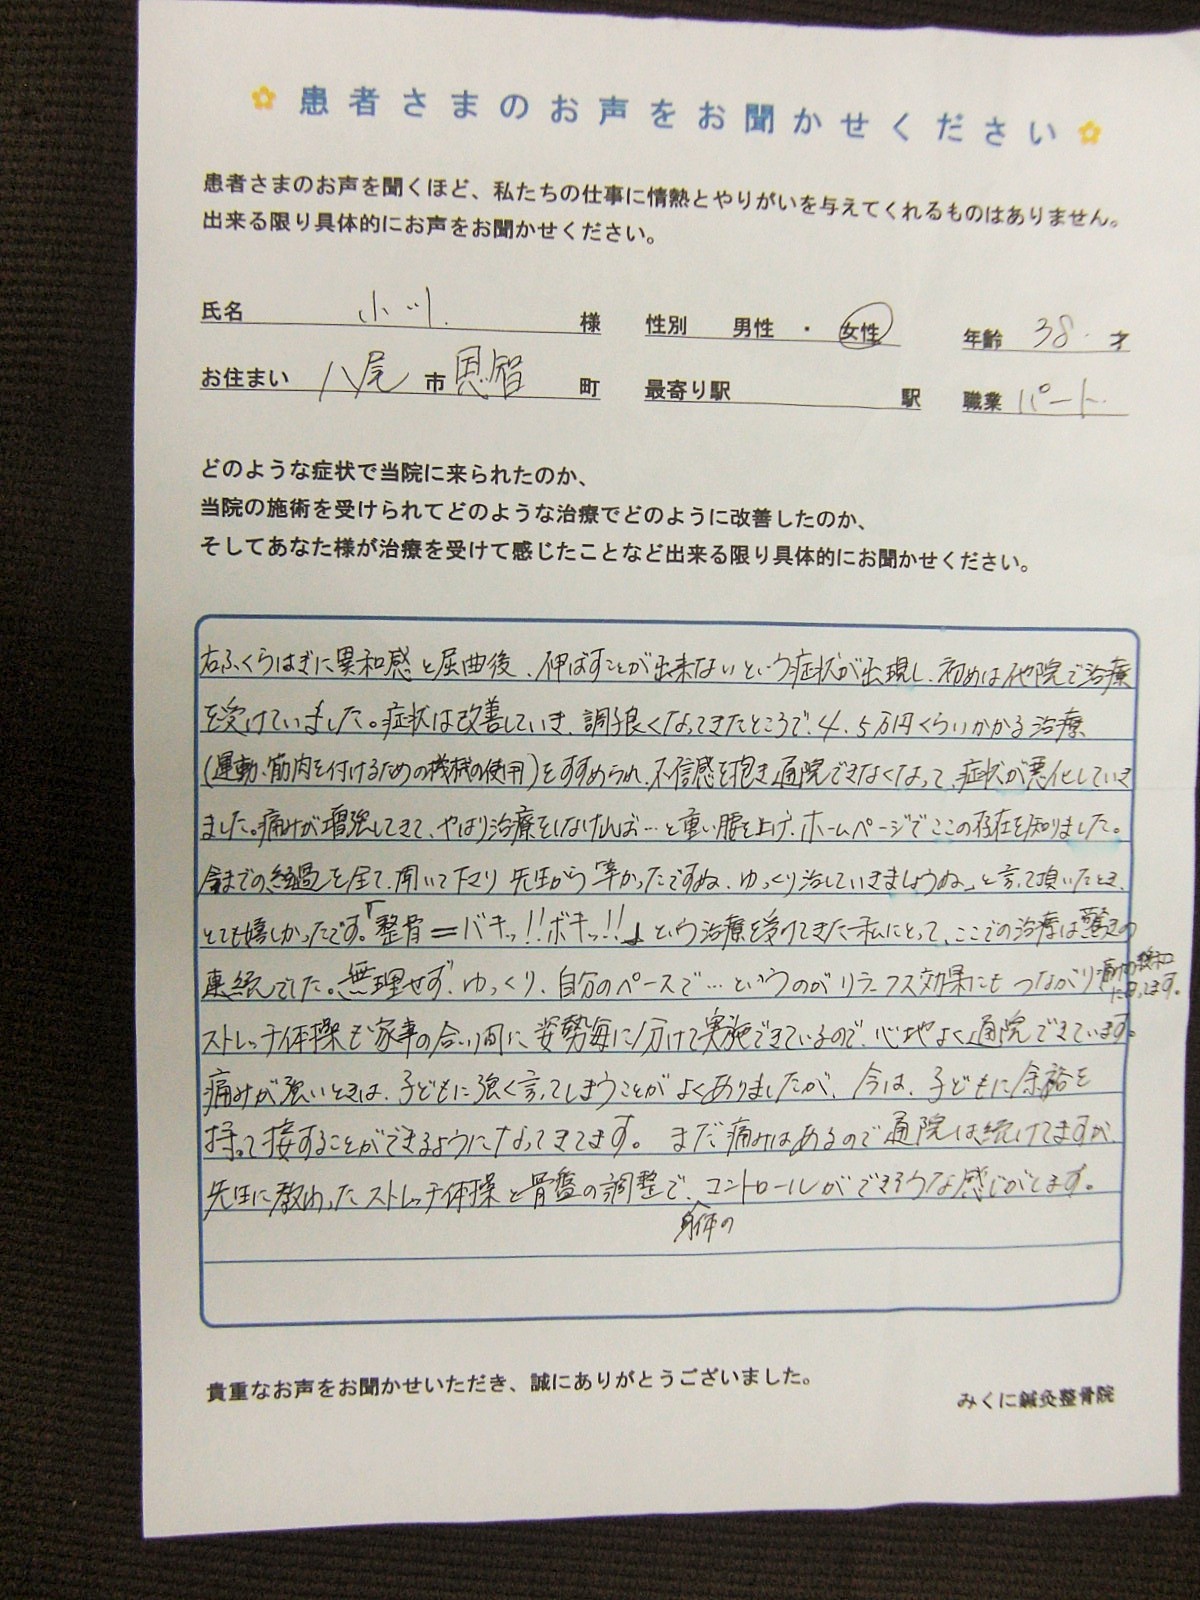 患者さまのお声をお聞かせください
患者さまのお声を聞くほど、私たちの仕事に情熱とやりがいを与えてくれるものはありません。
出来る限り具体的にお声をお聞かせください。
氏名 小川 様 性別 男性 ・ 女性 年齢 38 才
お住まい 八尾 市 恩智 町 最寄り駅 駅 職業 パート
どのような症状で当院に来られたのか、
当院の施術を受けられてどのような治療でどのように改善したのか、
そしてあなた様が治療を受けて感じたことなど出来る限り具体的にお聞かせください。
右ふくらはぎに異和感と屈曲後、伸ばすことが出来ないという症状が出現し、初めは他院で治療
を受けていました。症状は改善していき、調子良くなってきたところで、4、5万円くらいかかる治療
(運動、筋肉を付けるための機械の使用)をすすめられ、不信感を抱き通院できなくなって、症状が悪化していき
ました。痛みが増強してきて、やはり治療をしなければ…と重い腰を上げ、ホームページでここの存在を知りました。
今までの経過を全て、聞いて下さり 先生から「辛かったですね、ゆっくり治していきましょうね」と言って頂いたとき、
とても嬉しかったです。「整骨=バキッ!!ボキッ!!」という治療を受けてきた私にとって、ここでの治療は驚きの
連続でした。無理せず、ゆっくり、自分のペースで…というのがリラックス効果にもつながり痛みの緩和
になってます。
ストレッチ体操も家事の合い間に姿勢毎に分けて実施できているので、心地よく通院できています。
痛みが強いときは、子どもに強く言ってしまうことがよくありましたが、今は、子どもに余裕を
持って接することができるようになってきてます。まだ痛みはあるので通院は続けてますが、
先生に教わったストレッチ体操と骨盤の調整で、コントロールができそうな感じがします。
身体の
貴重なお声をお聞かせいただき、誠にありがとうございました。
みくに鍼灸整骨院